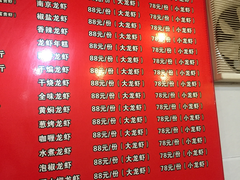 南京龙虾 88元/份(大龙虾) 78元/份(小龙虾)
椒盐龙虾 88元/份(大龙虾) 78元/份(小龙虾)
香辣龙虾 88元/份(大龙虾) 78元/份(小龙虾)
龙虾年糕 88元/份(大龙虾) 78元/份(小龙虾)
88元/份(大龙虾) 78元/份(小龙虾)
干煸龙虾 88元/份(大龙虾) 78元/份(小龙虾)
干烧龙虾 88元/份(大龙虾) 78元/份(小龙虾)
全味龙虾 88元/份(大龙虾) 78元/份(小龙虾)
黄焖龙虾 88元/份(大龙虾) 78元/份(小龙虾)
葱烤龙虾 88元/份(大龙虾) 78元/份(小龙虾)
咖喱龙虾 88元/份(大龙虾) 78元/份(小龙虾)
水煮龙虾 88元/份(大龙虾) 78元/份(小龙虾)
泡椒龙虾 88元/份(大龙虾) 78元/份(小龙虾)